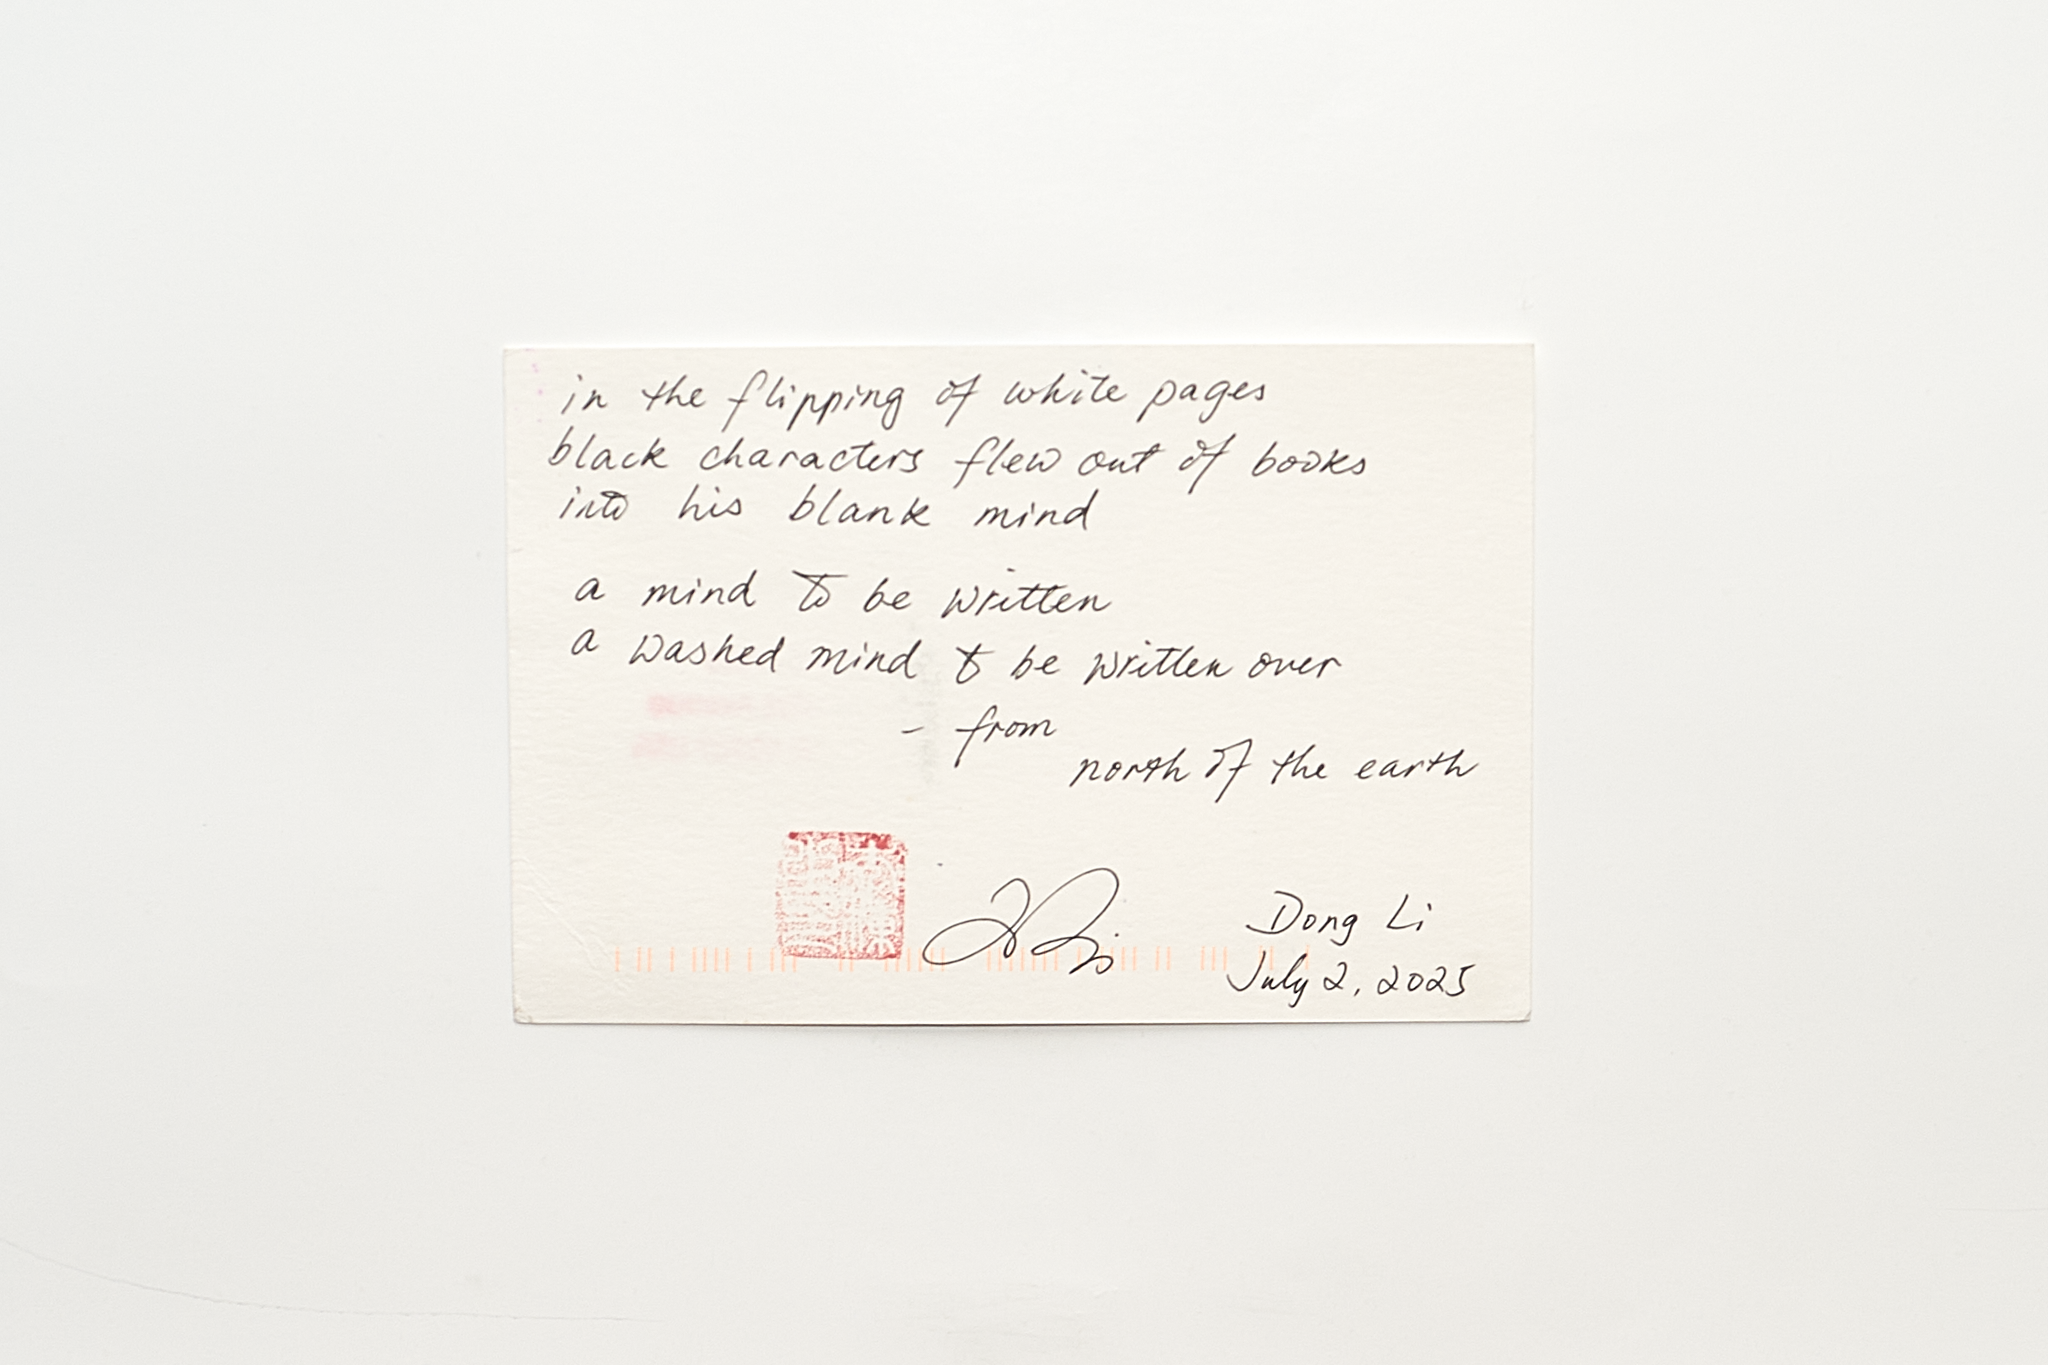 in the flipping of white pages
black characters flew out of books
into his blank mind
a mind to be written
a washed mind to be written over
- from
north of the earth
Dong Li
July 2, 2025